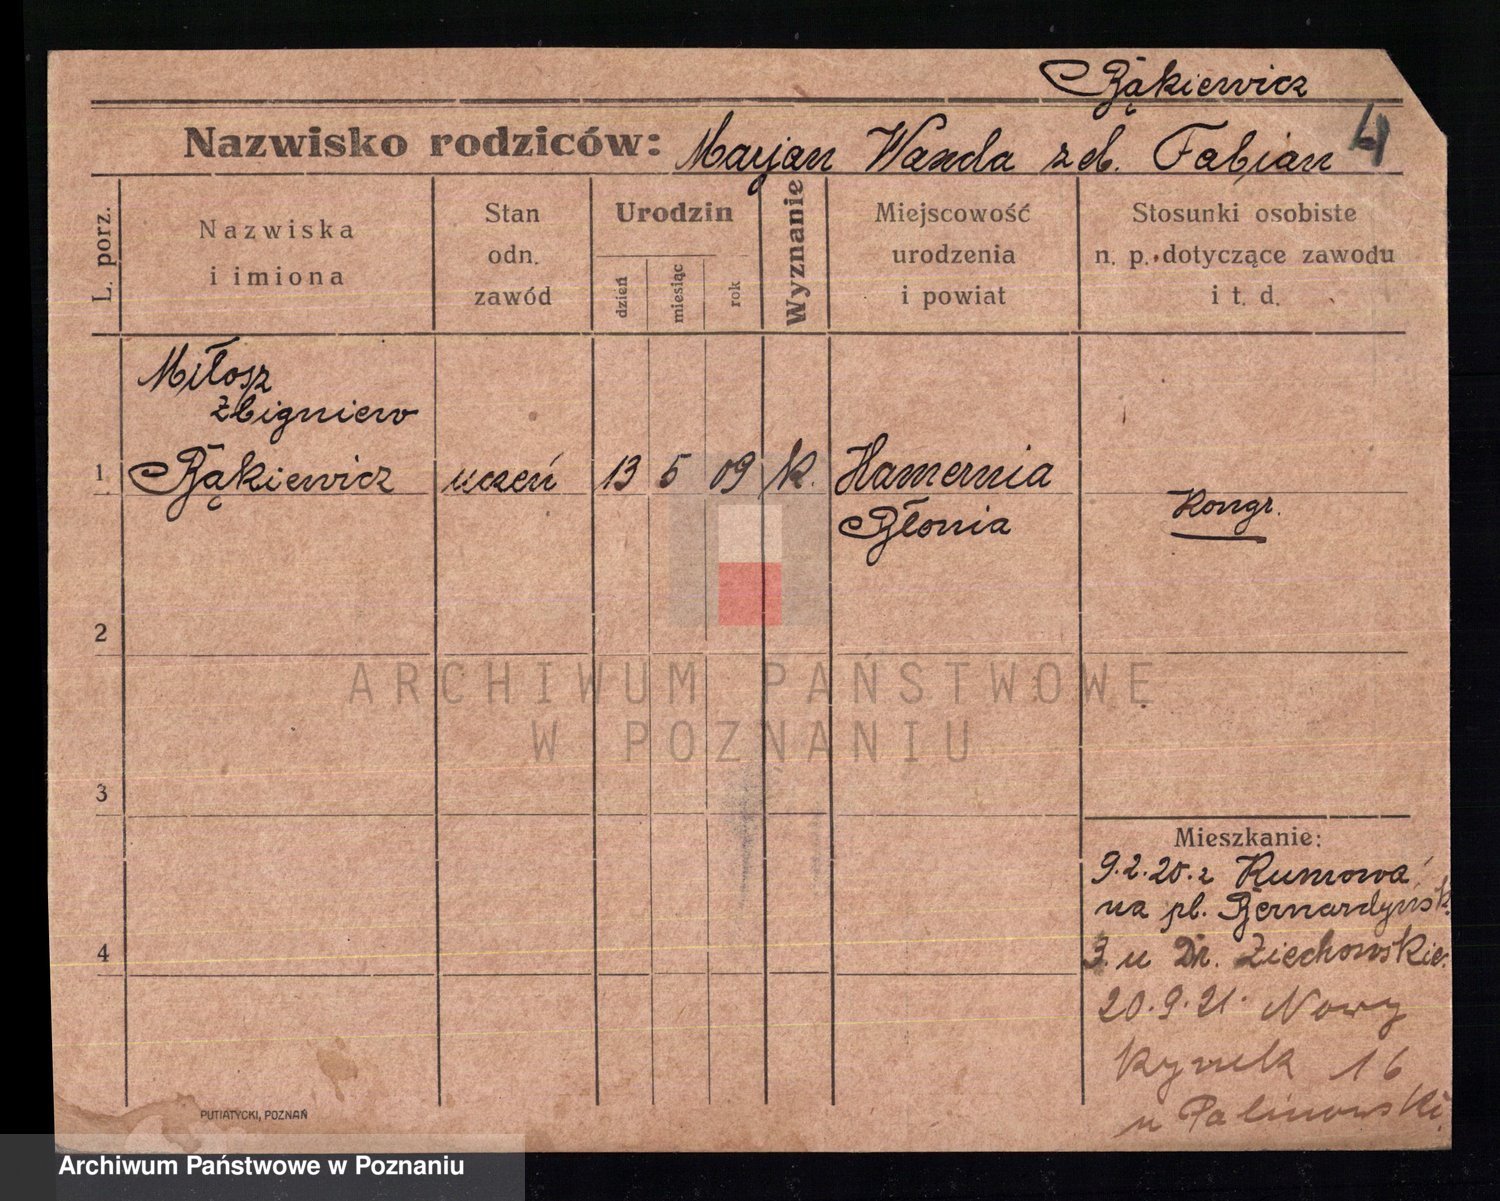 Bąkiewicz
Nazwisko rodziców: Marjan Wanda z d. Fabian 4
L. porz.
Nazwiska
i imiona
Stan
odn.
zawód
Urodzin
dzień
miesiąc
rok
Wyznanie
Miejscowość
urodzenia
i powiat
Stosunki osobiste
n. p. dotyczące zawodu
i t. d.
Miłosz
Zbigniew
1 Bąkiewicz uczeń 13 5 09 k. Hamernia
Błonia
Kongr.
2
3
4
ARCHIWUM PAŃSTWOWE
W POZNANIU
Mieszkanie:
9.2.20. z Rumowa
na pl. Bernardyńsk.
3 u Dr. Ziechowskie.
20.9.21. Nowy
Rynek 16
u Palinowski.
PUTIATYCKI, POZNAŃ
Archiwum Państwowe w Poznaniu